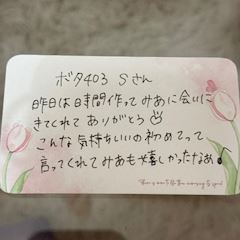 ボタ403 Sさん
昨日は時間作ってみあに会いに
きてくれてありがとう
こんな気持ちいいの初めてって
言ってくれてみあも嬉しかったなぁ